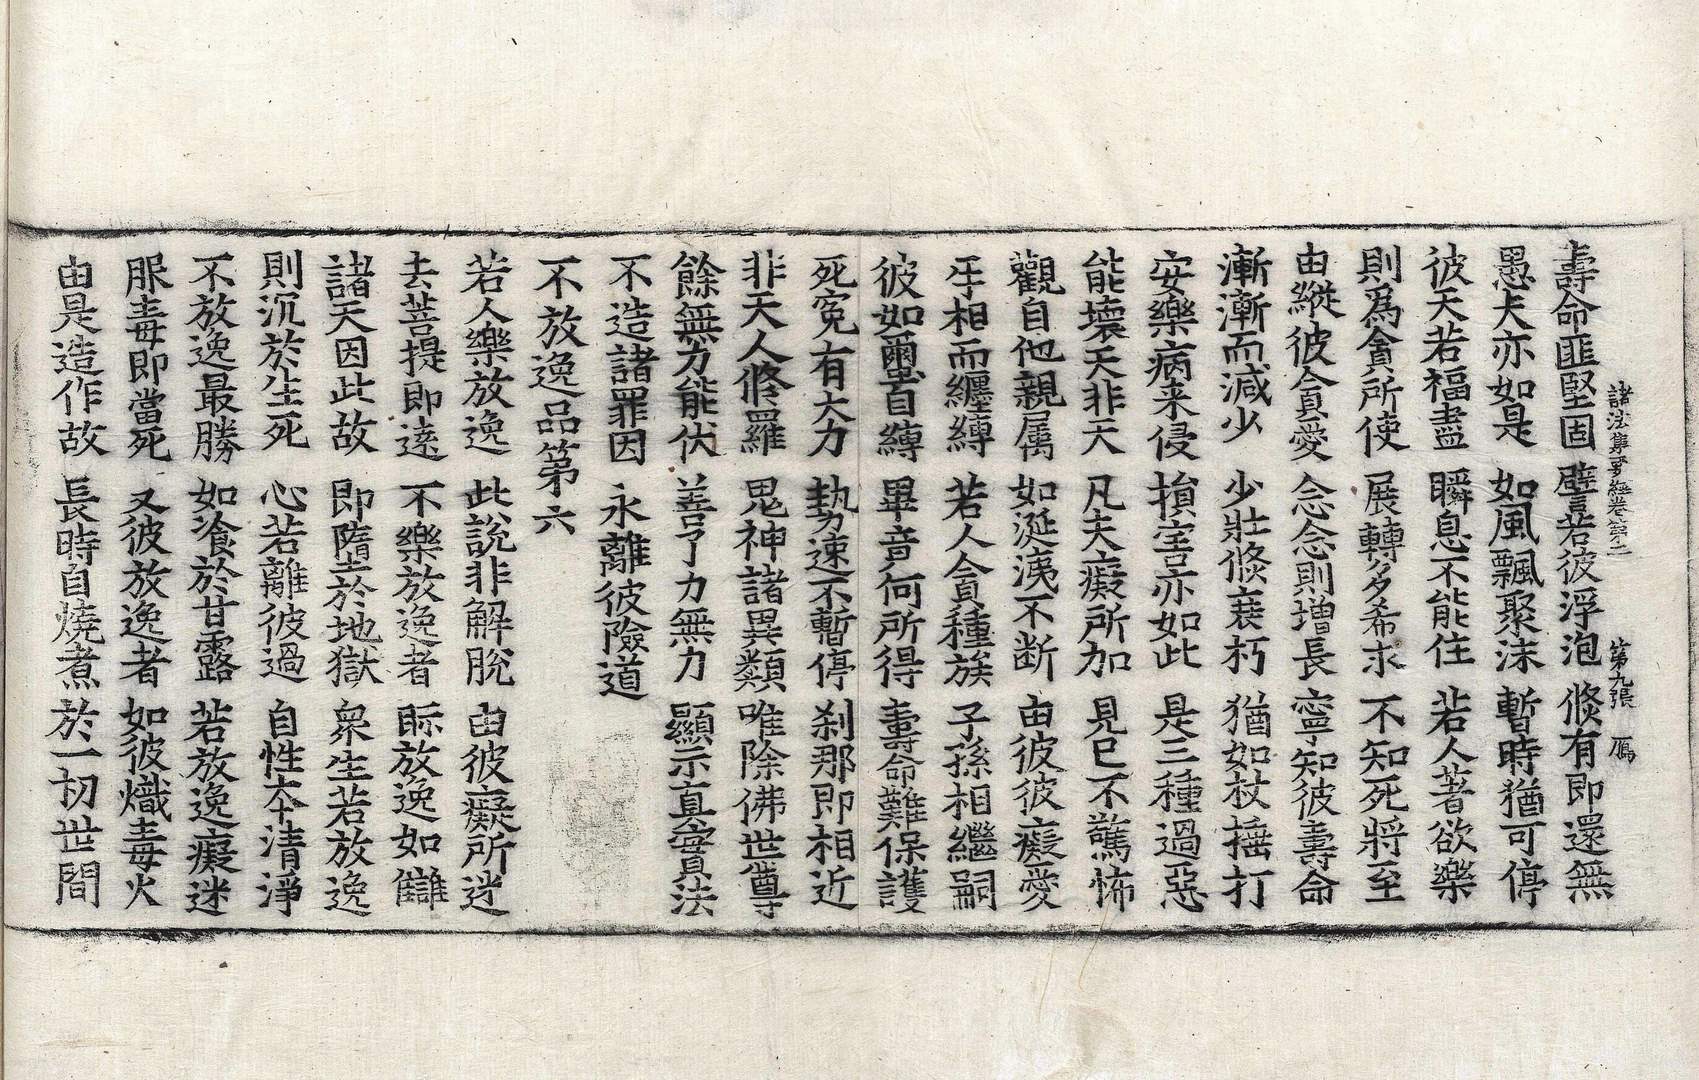 諸法集要經卷第二 第九張 鴈
壽命匪堅固 譬若彼浮泡 倐有即還無
愚夫亦如是 如風飄聚沫 暫時猶可停
彼天若福盡 瞬息不能住 若人著欲樂
則爲貪所使 展轉多希求 不知死將至
由縱彼貪愛 念念則增長 寧知彼壽命
漸漸而減少 少壯倐衰朽 猶如杖捶打
安樂病来侵 損害亦如此 是三種過惡
能壞天非天 凡夫癡所加 見已不驚怖
觀自他親属 如涎洟不断 由彼彼癡愛
乎相而纏縛 若人貪種族 子孫相繼嗣
彼如蠒自縛 畢竟何所得 壽命難保護
死寃有大力 勢速不暫停 刹那即相近
非天人脩羅 鬼神諸異類 唯除佛世尊
餘無力能伏 善了力無力 顯示真實法
不造諸罪因 永離彼險道
不放逸品第六
若人樂放逸 此說非解脫 由彼癡所迷
去菩提即遠 不樂放逸者 眎放逸如讎
諸天因此故 即墮於地獄 衆生若放逸
則沉於生死 心若離彼過 自性本清淨
不放逸最勝 如飡於甘露 若放逸癡迷
服毒即當死 又彼放逸者 如彼熾毒火
由是造作故 長時自燒煮 於一切世間